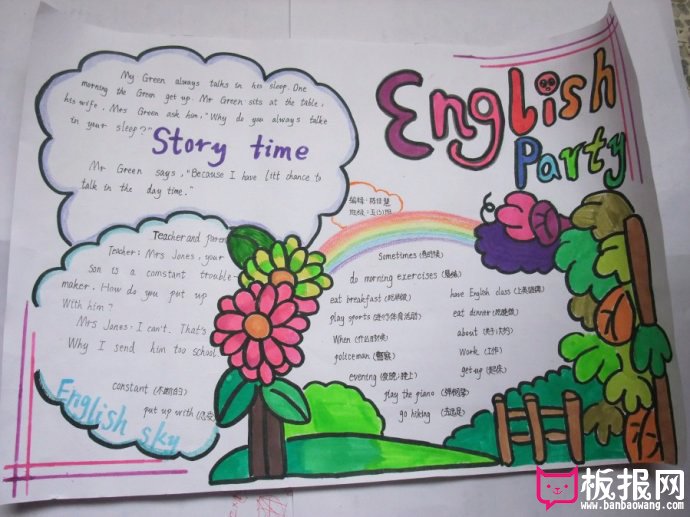 English
Party
My Green always talks in his sleep. One
morning the Green get up. Mr Green sits at the table,
his wife, Mrs Green ask him, "Why do you always talke
in your sleep?"
Story time
Mr Green says, "Because I have litt chance to
talk in the day time."
编辑:
班级:五(3)班
Teacher and paren
Teacher: Mrs Jones, your
son is a comstant trouble-
maker. How do you put up
With him?
Mrs Jones: I can't. That's
Why I send him too school.
constant (不断的)
put up with (忍受)
English sky
Sometimes (有时候)
do morning exercises (晨练)
eat breakfast (吃早饭)
have English class (上英语课)
play sports (进行体育活动)
eat dinner (吃晚饭)
When (什么时候)
about (关于;大约)
policeman (警察)
Work (工作)
evening (夜晚;晚上)
get up (起床)
play the piano (弹钢琴)
go hiking (去远足)
板报网
www.banbaowang.com